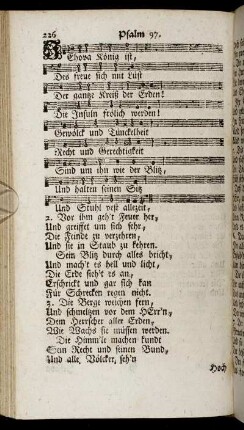 226 Psalm 97.
JEhova König ist,
Des freue sich mit Lust
Der gantze Kreiß der Erden!
Die Insuln frölich werden!
Gewölck und Tunckelheit
Recht und Gerechtigkeit
Sind um ihn wie der Blitz,
Und halten seinen Sitz
Und Stuhl vest allezeit.
2. Vor ihm geh't Feuer her,
Und greiffet um sich sehr,
Die Feinde zu verzehren,
Und sie in Staub zu kehren.
Sein Blitz durch alles bricht,
Und mach't es hell und licht,
Die Erde sieh't es an,
Erschrickt und gar sich kan
Für Schrecken regen nicht.
3. Die Berge weichen fern,
Und schmeltzen vor dem HErr'n,
Dem Herrscher aller Erden,
Wie Wachs sie müssen werden.
Die Himm'le machen kundt
Sein Recht und seinen Bund,
Und alle Völcker seh'n
Hoch